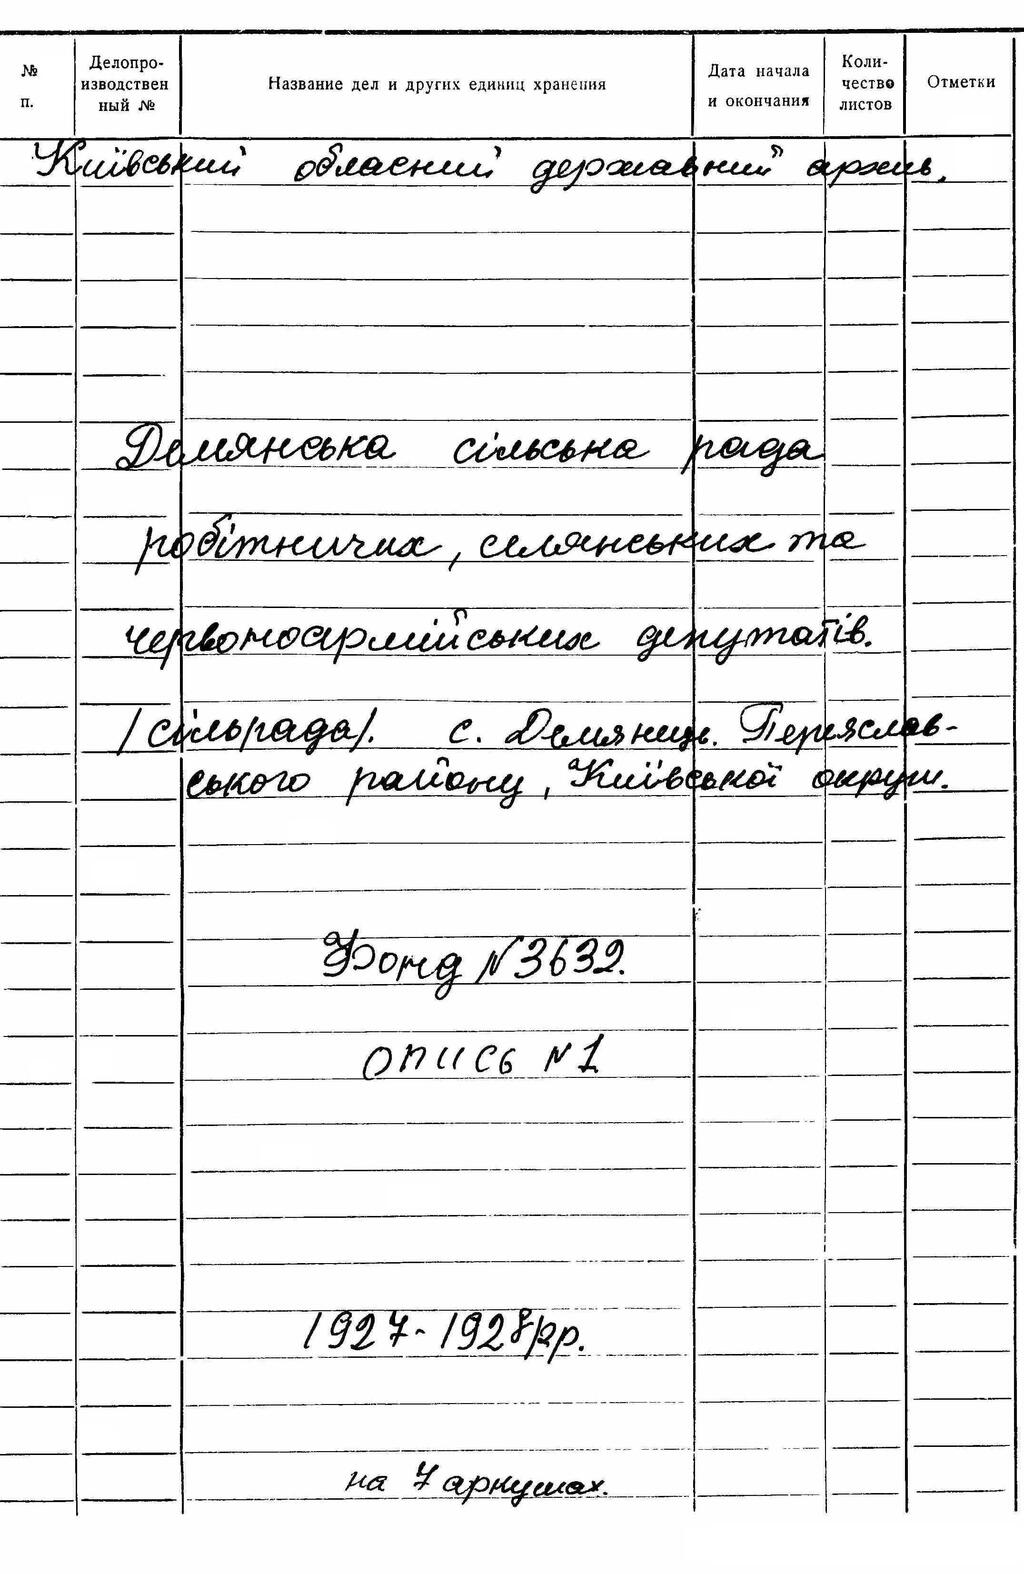 № п.
Делопро-
изводствен
ный №
Название дел и других единиц хранения
Дата начала
и окончания
Коли-
чество
листов
Отметки
Київський обласний державний архив.
Демянська сільська рада
робітничих, селянських та
червоноармійських депутатів.
/сільрада/. с. Демянць. Переяслав-
ського району, Київської округи.
Фонд N3632.
опись N1
1927-1928рр.
на 7 аркушах.